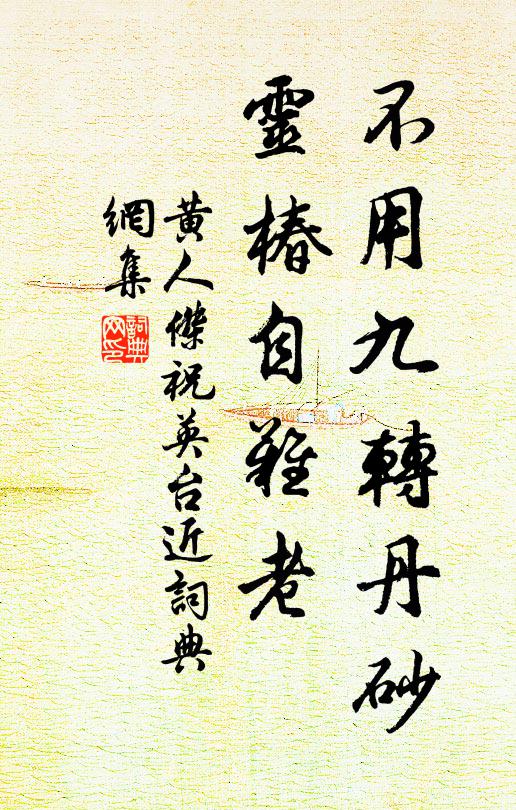 不用九轉丹砂
靈椿自難老
黄人傑祝英台近詞典
網集
詞典
网印